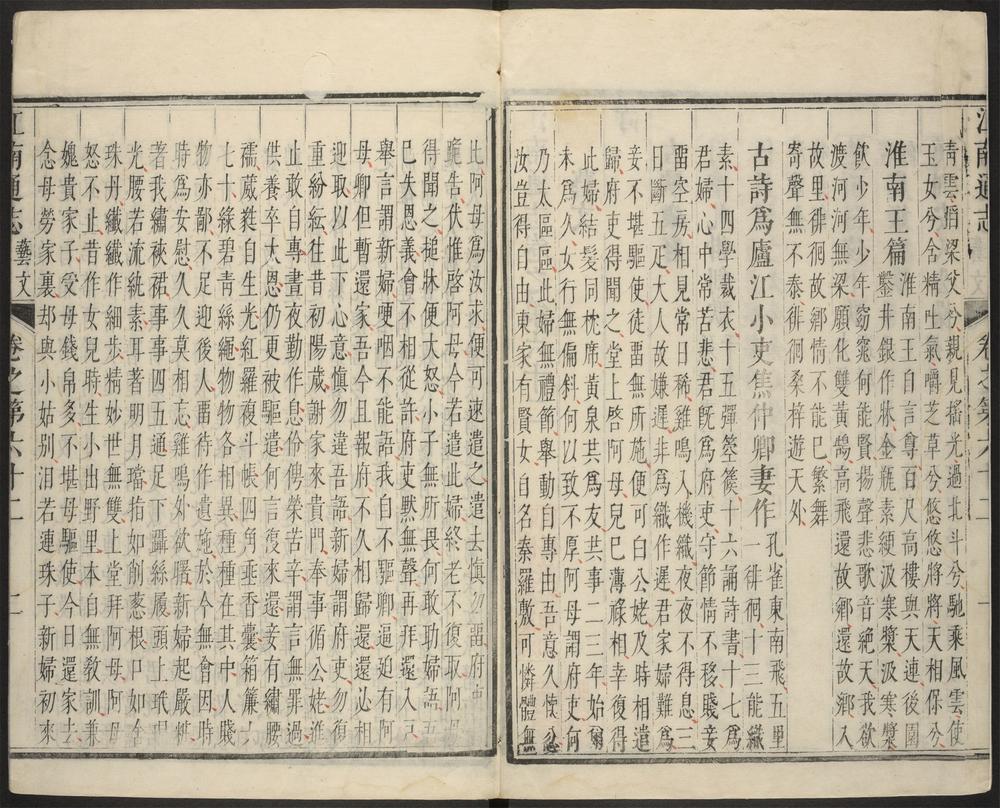 江南通志
卷之第六十二
一
青雲㨗梁父兮親見揺光過北斗兮馳乘風雲使
玉女兮含精吐氣嚼芝草兮悠悠將將天相保兮
淮南王篇
淮南王自言尊百尺高樓與天連後園
鑿井銀作牀金瓶素綆汲寒漿汲寒漿
飲少年少年窈窕何能賢揚聲悲歌音絕天我欲
渡河河無梁願化雙黃鵠高飛還故鄉還故鄉入
故里徘徊故鄉情不能已繁舞
寄聲無不泰徘徊桑梓遊天外
古詩爲廬江小吏焦仲卿妻作
孔雀東南飛五里
一徘徊十三能織
素十四學裁衣十五彈箜篌十六誦詩書十七爲
君婦心中常苦悲君旣爲府吏守節情不移賤妾
畱空房相見常日稀雞鳴入機織夜夜不得息三
日斷五疋大人故嫌遲非爲織作遲君家婦難爲
妾不堪驅使徒畱無所施便可白公姥及時相遣
歸府吏得聞之堂上啓阿母兒已薄祿相幸復得
此婦結髮同枕席黃泉共爲友共事二三年始爾
未爲久女行無偏斜何以致不厚阿母謂府吏何
乃太區區此婦無禮節舉動自專由吾意久懷忿
汝豈得自由東家有賢女自名秦羅敷可憐體無
比阿母爲汝求便可速遣之遣去愼勿畱府吏
跪告伏惟啓阿母今若遣此婦終老不復取阿母
得聞之搥牀便大怒小子無所畏何敢助婦語吾
已失恩義會不相從許府吏默無聲再拜還入戶
舉言謂新婦哽咽不能語我自不驅卿逼迫有阿
母卿但暫還家吾今且報府不久相歸還還必相
迎取以此下心意愼勿違吾語新婦謂府吏勿復
重紛紜徃昔初陽歲謝家來貴門奉事循公姥進
止敢自專晝夜勤作息伶俜縈苦辛謂言無罪過
供養卒大恩仍更被驅遣何言復來還妾有繡腰
襦葳蕤自生光紅羅複斗帳四角垂香囊箱簾六
七十綠碧青絲繩物物各相異種種在其中人賤
物亦鄙不足迎後人畱待作遺施於今無會因時
時爲安慰久久莫相忘雞鳴外欲曙新婦起嚴粧
著我繡裌裙事事四五通足下躡絲履頭上玳瑁
光腰若流紈素耳著明月璫指如削葱根口如含
珠丹纖纖作細步精妙世無雙上堂拜阿母阿母
怒不止昔作女兒時生小出野里本自無敎訓兼
媿貴家子受母錢帛多不堪母驅使今日還家去
念母勞家裏却與小姑別淚若連珠子新婦初來
江南通志
藝文
卷之第六十二
二